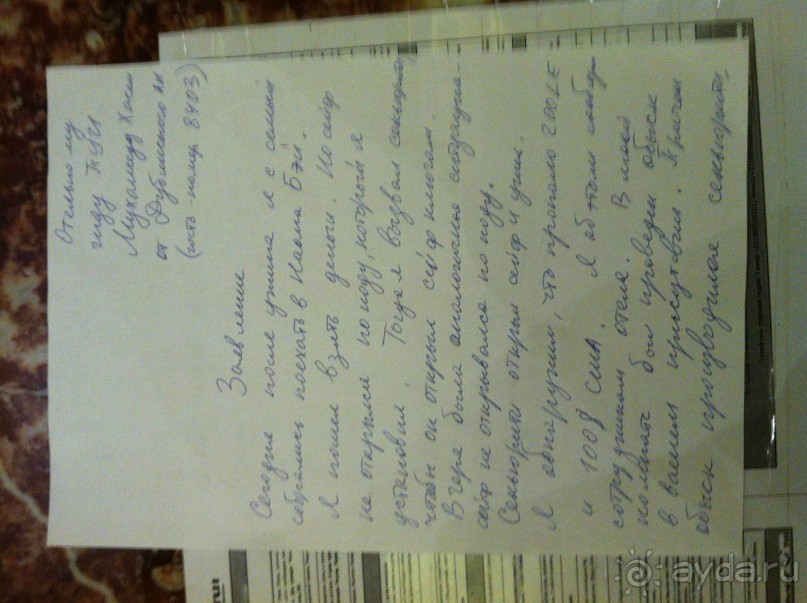 Отельному
гиду TUI
Мухамеду Хасан
от Дубинского АН
(гость номер 8403)
Заявление
Сегодня после ужина я с семьей
собрались поехать в Наама Бэй.
Я пошел взять деньги. Но сейф
не открылся по коду, который я
установил. Тогда я вызвал секьюрити,
чтобы он открыл сейф ключом.
Вчера была аналогичная ситуация -
сейф не открывался по коду.
Секьюрити открыл сейф и ушел.
Я обнаружил, что пропало 200 LE
и 100$ США. Я об этом сообщил
сотрудникам отеля. В моей
комнате был проведен обыск
в вашем присутствии. Причем
обыск производился секьюрити,
ayda.ru